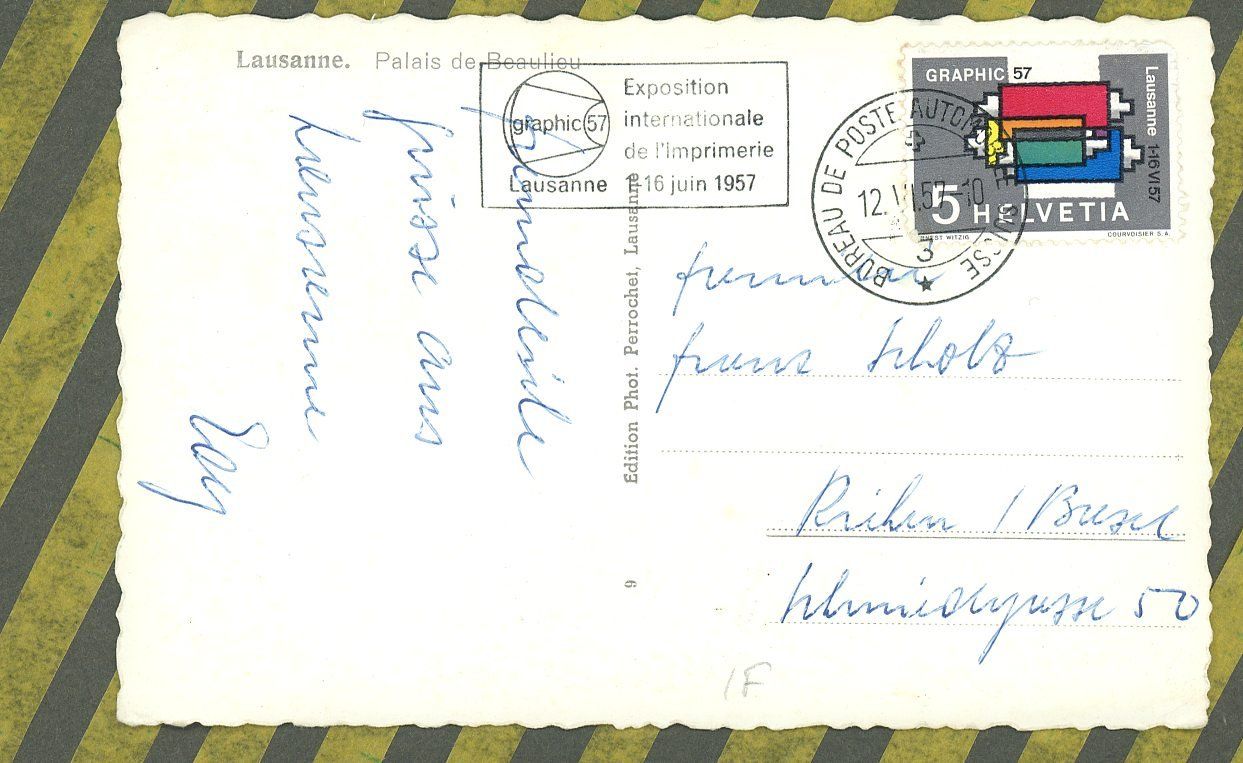 Lausanne. Palais de Beaulieu
graphic 57
Exposition
internationale
de l'Imprimerie
Lausanne 1-16 juin 1957
BUREAU DE POSTE AUTOMOBILE SUISSE
12. VI. 57-10
3
GRAPHIC 57
Lausanne 1-16 VI 57
5 HELVETIA
ERNST WITZIG
COURVOISIER S.A.
Freundliche
Grüsse aus
Lausanne
Edition Phot. Perrochet, Lausanne
9
Franz Scholz
Riehen / Basel
Schmiedgasse 50
1F